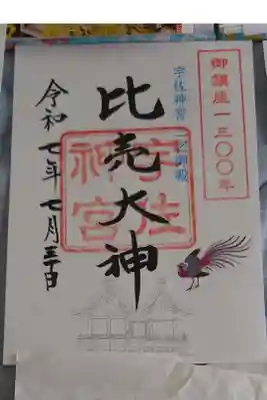 御鎮座一三〇〇年
宇佐神宮 二之御殿
比売大神
宇佐神宮
令和七年 七月三十日